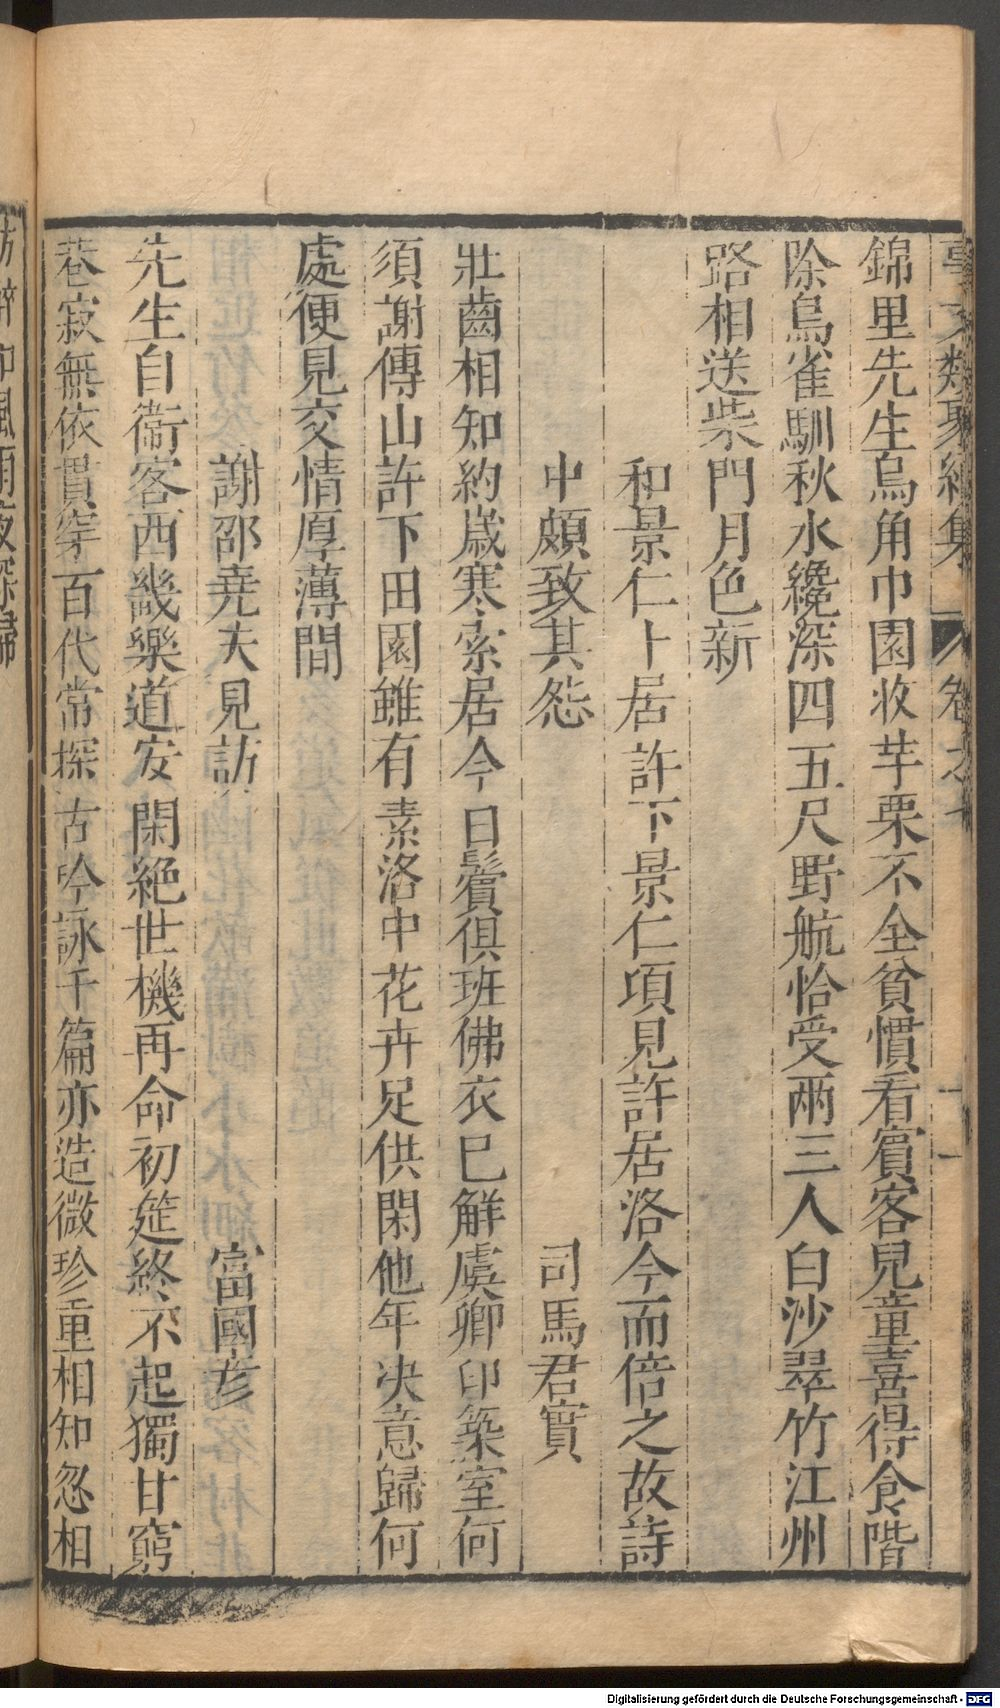 事文類聚續集 卷之
錦里先生烏角巾園收芋栗不全貧慣看賓客兒童喜得食階
除鳥雀馴秋水纔深四五尺野航恰受兩三人白沙翠竹江州
路相送柴門月色新
和景仁卜居許下景仁頃見許居洛今而倍之故詩
中頗致其怨 司馬君實
壯齒相知約歲寒索居今日鬢俱班佛衣巳解虞卿印築室何
須謝傳山許下田園雖有素洛中花卉足供閑他年决意歸何
處便見交情厚薄間
謝邵堯夫見訪 富國彥
先生自衞客西畿樂道安閑絶世機再命初筵終不起獨甘窮
巷寂無依貫穿百代常探古吟詠千篇亦造微珍重相知忽相
訪醉和風雨夜深歸
Digitalisierung gefördert durch die Deutsche Forschungsgemeinschaft - DFG